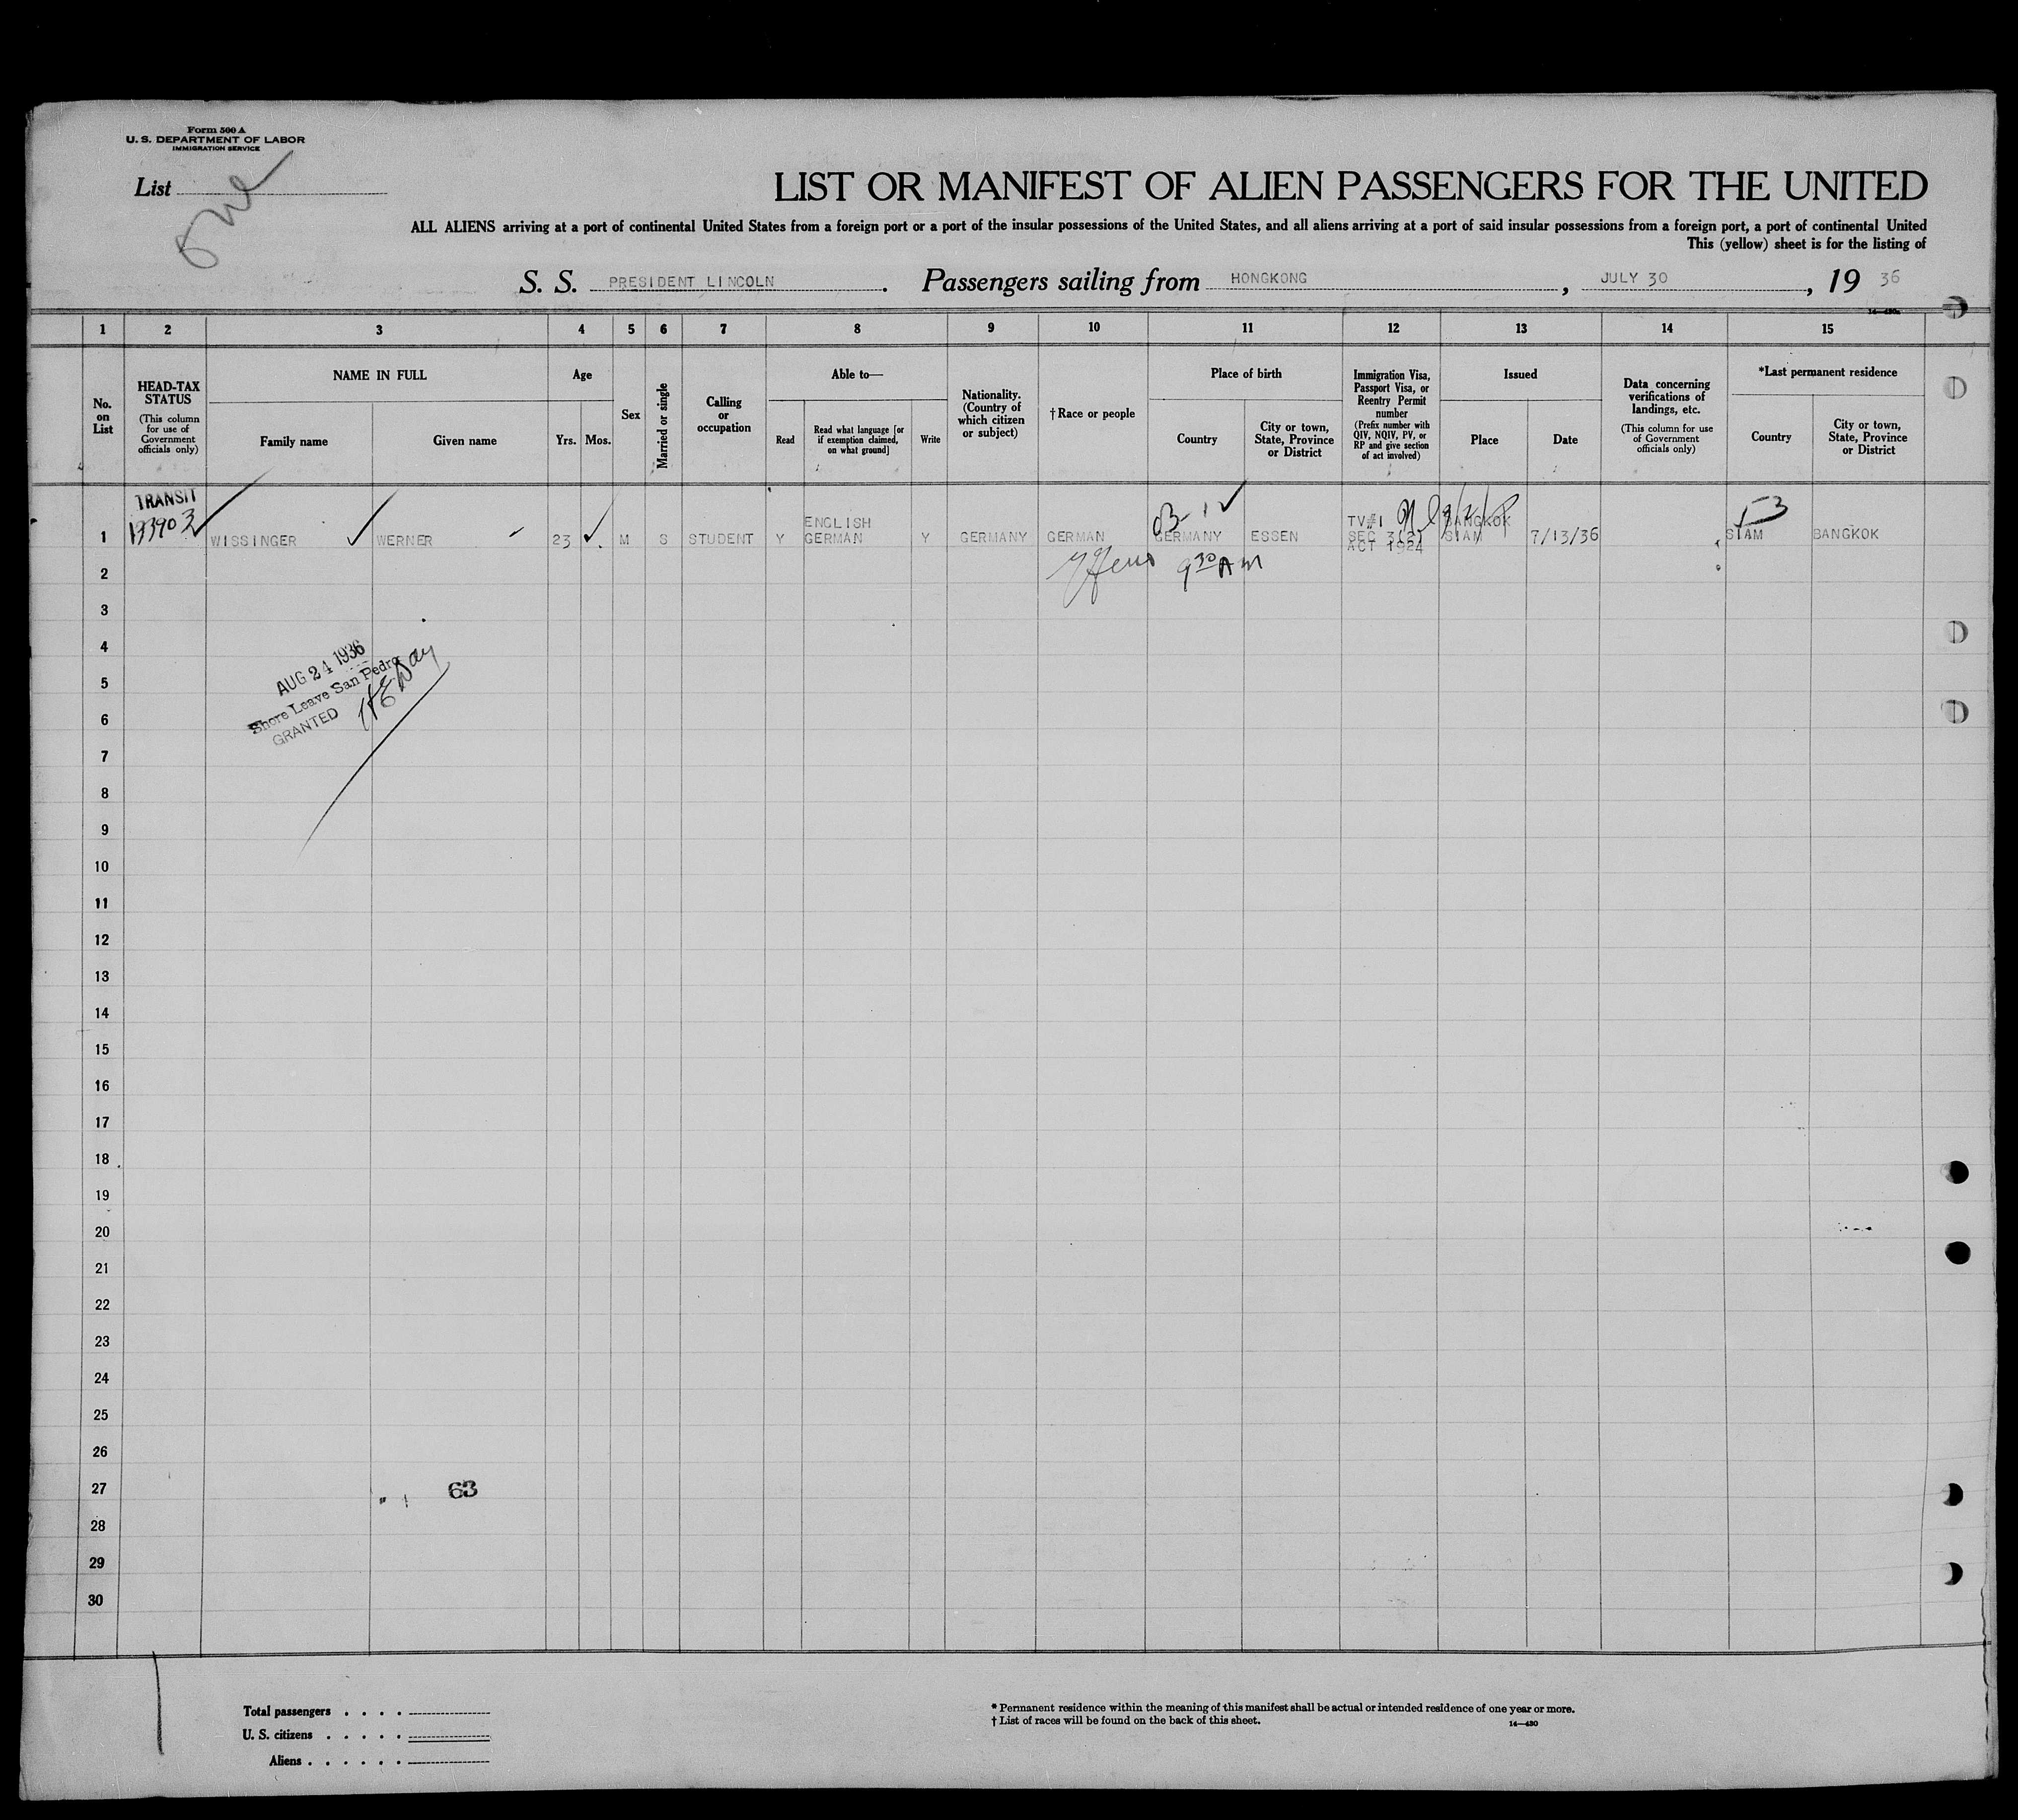 Form 500 A
U. S. DEPARTMENT OF LABOR
IMMIGRATION SERVICE
List One
LIST OR MANIFEST OF ALIEN PASSENGERS FOR THE UNITED
ALL ALIENS arriving at a port of continental United States from a foreign port or a port of the insular possessions of the United States, and all aliens arriving at a port of said insular possessions from a foreign port, a port of continental United
This (yellow) sheet is for the listing of
S. S. PRESIDENT LINCOLN. Passengers sailing from HONGKONG, JULY 30, 19 36
1 2 3 4 5 6 7 8 9 10 11 12 13 14 15
No. on List
HEAD-TAX STATUS
(This column for use of Government officials only)
NAME IN FULL
Family name
Given name
Age
Yrs. Mos.
Sex
Married or single
Calling or occupation
Able to—
Read
Read what language [or if exemption claimed, on what ground]
Write
Nationality. (Country of which citizen or subject)
†Race or people
Place of birth
Country
City or town, State, Province or District
Immigration Visa, Passport Visa, or Reentry Permit number
(Prefix number with QIV, NQIV, PV, or RP and give section of act involved)
Issued
Place
Date
Data concerning verifications of landings, etc.
(This column for use of Government officials only)
*Last permanent residence
Country
City or town, State, Province or District
TRANSIT
1 WISSINGER WERNER 23 M S STUDENT Y ENGLISH GERMAN Y GERMANY GERMAN GERMANY ESSEN TV#1 SEC 3(2) ACT 1924 BANGKOK SIAM 7/13/36 SIAM BANGKOK
53
2 9 30 AM
3
4
5
6
7
8
9
10
11
12
13
14
15
16
17
18
19
20
21
22
23
24
25
26
27
28
29
30
AUG 24 1936
Shore Leave San Pedro
GRANTED
63
Total passengers . . . .
U. S. citizens . . . . .
Aliens . . . . . .
* Permanent residence within the meaning of this manifest shall be actual or intended residence of one year or more.
† List of races will be found on the back of this sheet. 14—430